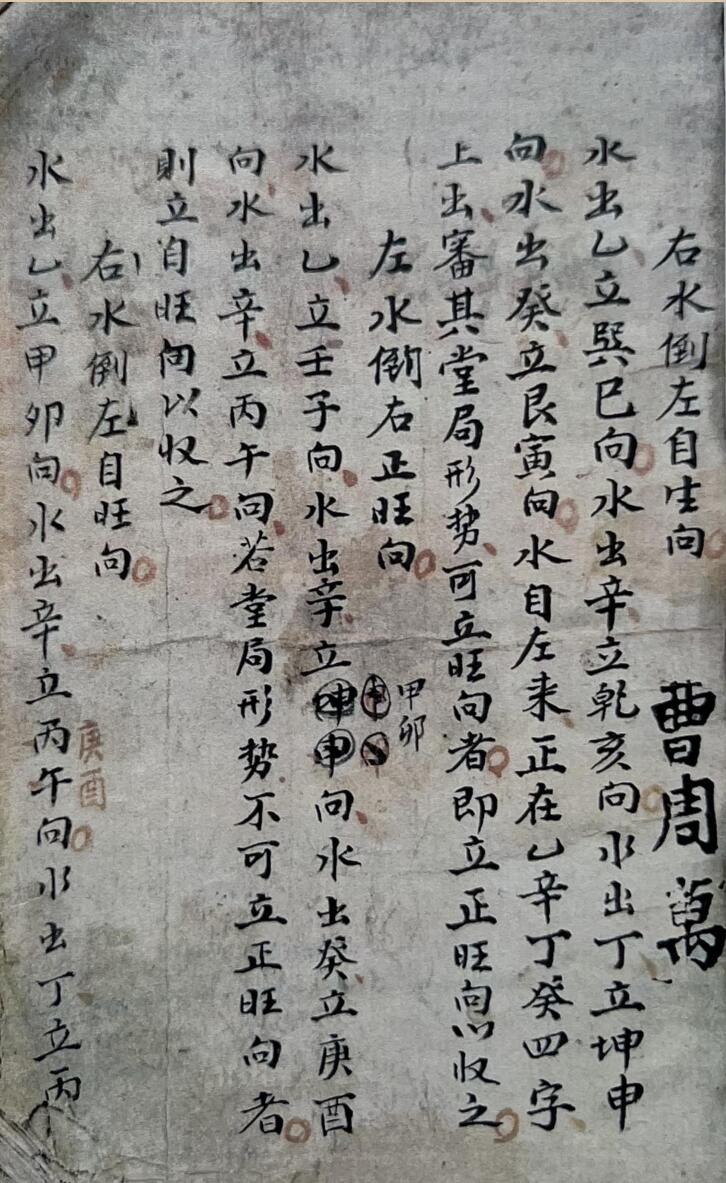 右水倒左自生向
曹周萬
水出乙立巽巳向水出辛立乾亥向水出丁立坤申
向水出癸立艮寅向水自左来正在乙辛丁癸四字
上出審其堂局形势可立旺向者即立正旺向以收之
左水倒右正旺向
甲卯
水出乙立壬子向水出辛立坤申向水出癸立庚酉
向水出辛立丙午向若堂局形势不可立正旺向者
則立自旺向以收之
右水倒左自旺向
庚酉
水出乙立甲卯向水出辛立丙午向水出丁立丙